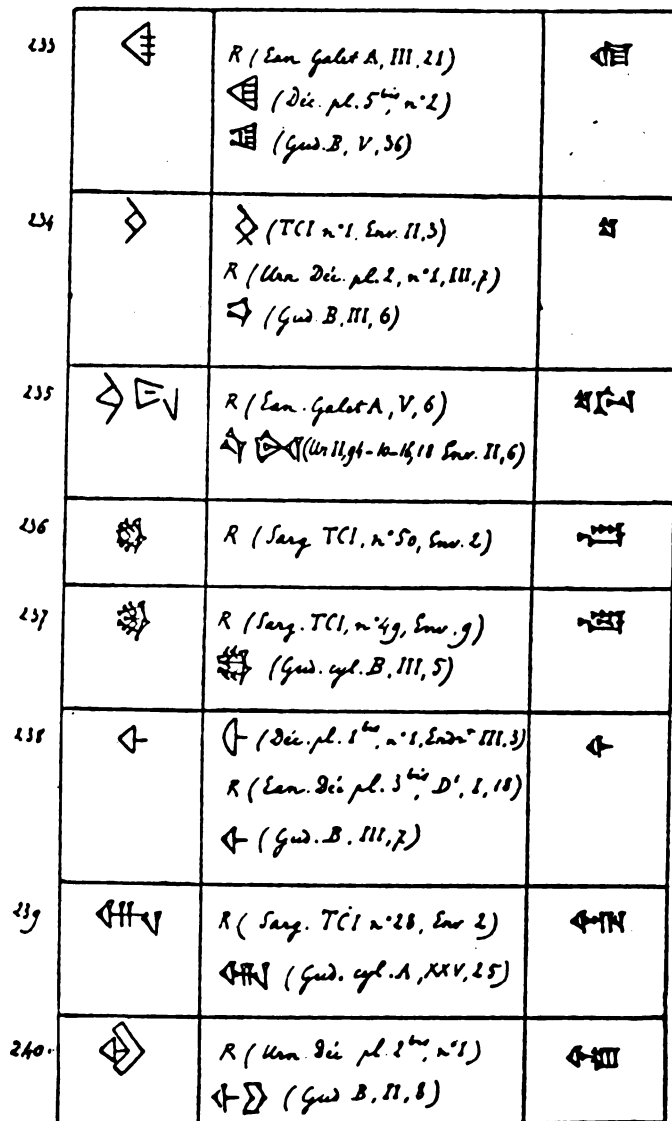 233
R (Ean. Galet A, III, 21)
(Déc. pl. 5 bis, n° 2)
(Gud. B, V, 36)
234
(TCI n° 1. Env. II, 3)
R (Urn Déc. pl. 2, n° 1, III, 7)
(Gud. B, III, 6)
235
R (Ean. Galet A, V, 6)
18 Env. II, 6)
236
R (Sarg TCI, n° 50, Env. 2)
237
R (Sarg. TCI, n° 49, Env. 9)
(Gud. cyl. B, III, 5)
238
(Déc. pl. 1 bis, n° 1, III, 3)
R (Ean. Déc pl. 3 bis, D', I, 18)
(Gud. B. III, 7)
239
R (Sarg. TCI n° 28, Env 2)
(Gud. cyl. A, XXV, 25)
240
R (Urn. Déc pl. 2 bis, n° 1)
(Gud B, II, 8)